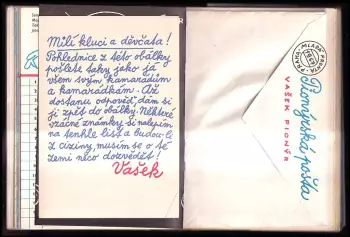 Milí kluci a děvčata!
Pohlednice z této obálky
pošlete taky jako já
všem svým kamarádům
a kamarádkám. Až
dostanu odpověď, dám si
ji zpět do obálky. Některé
vzácné známky si nalepím
na tenhle list a budou-li
z ciziny, musím se o té
zemi něco dozvědět!
Vašek
Pionýrská pošta
VAŠEK PIONÝR